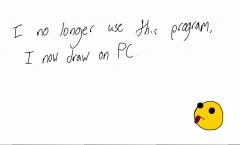 I no longer use this program,
I now draw on PC.